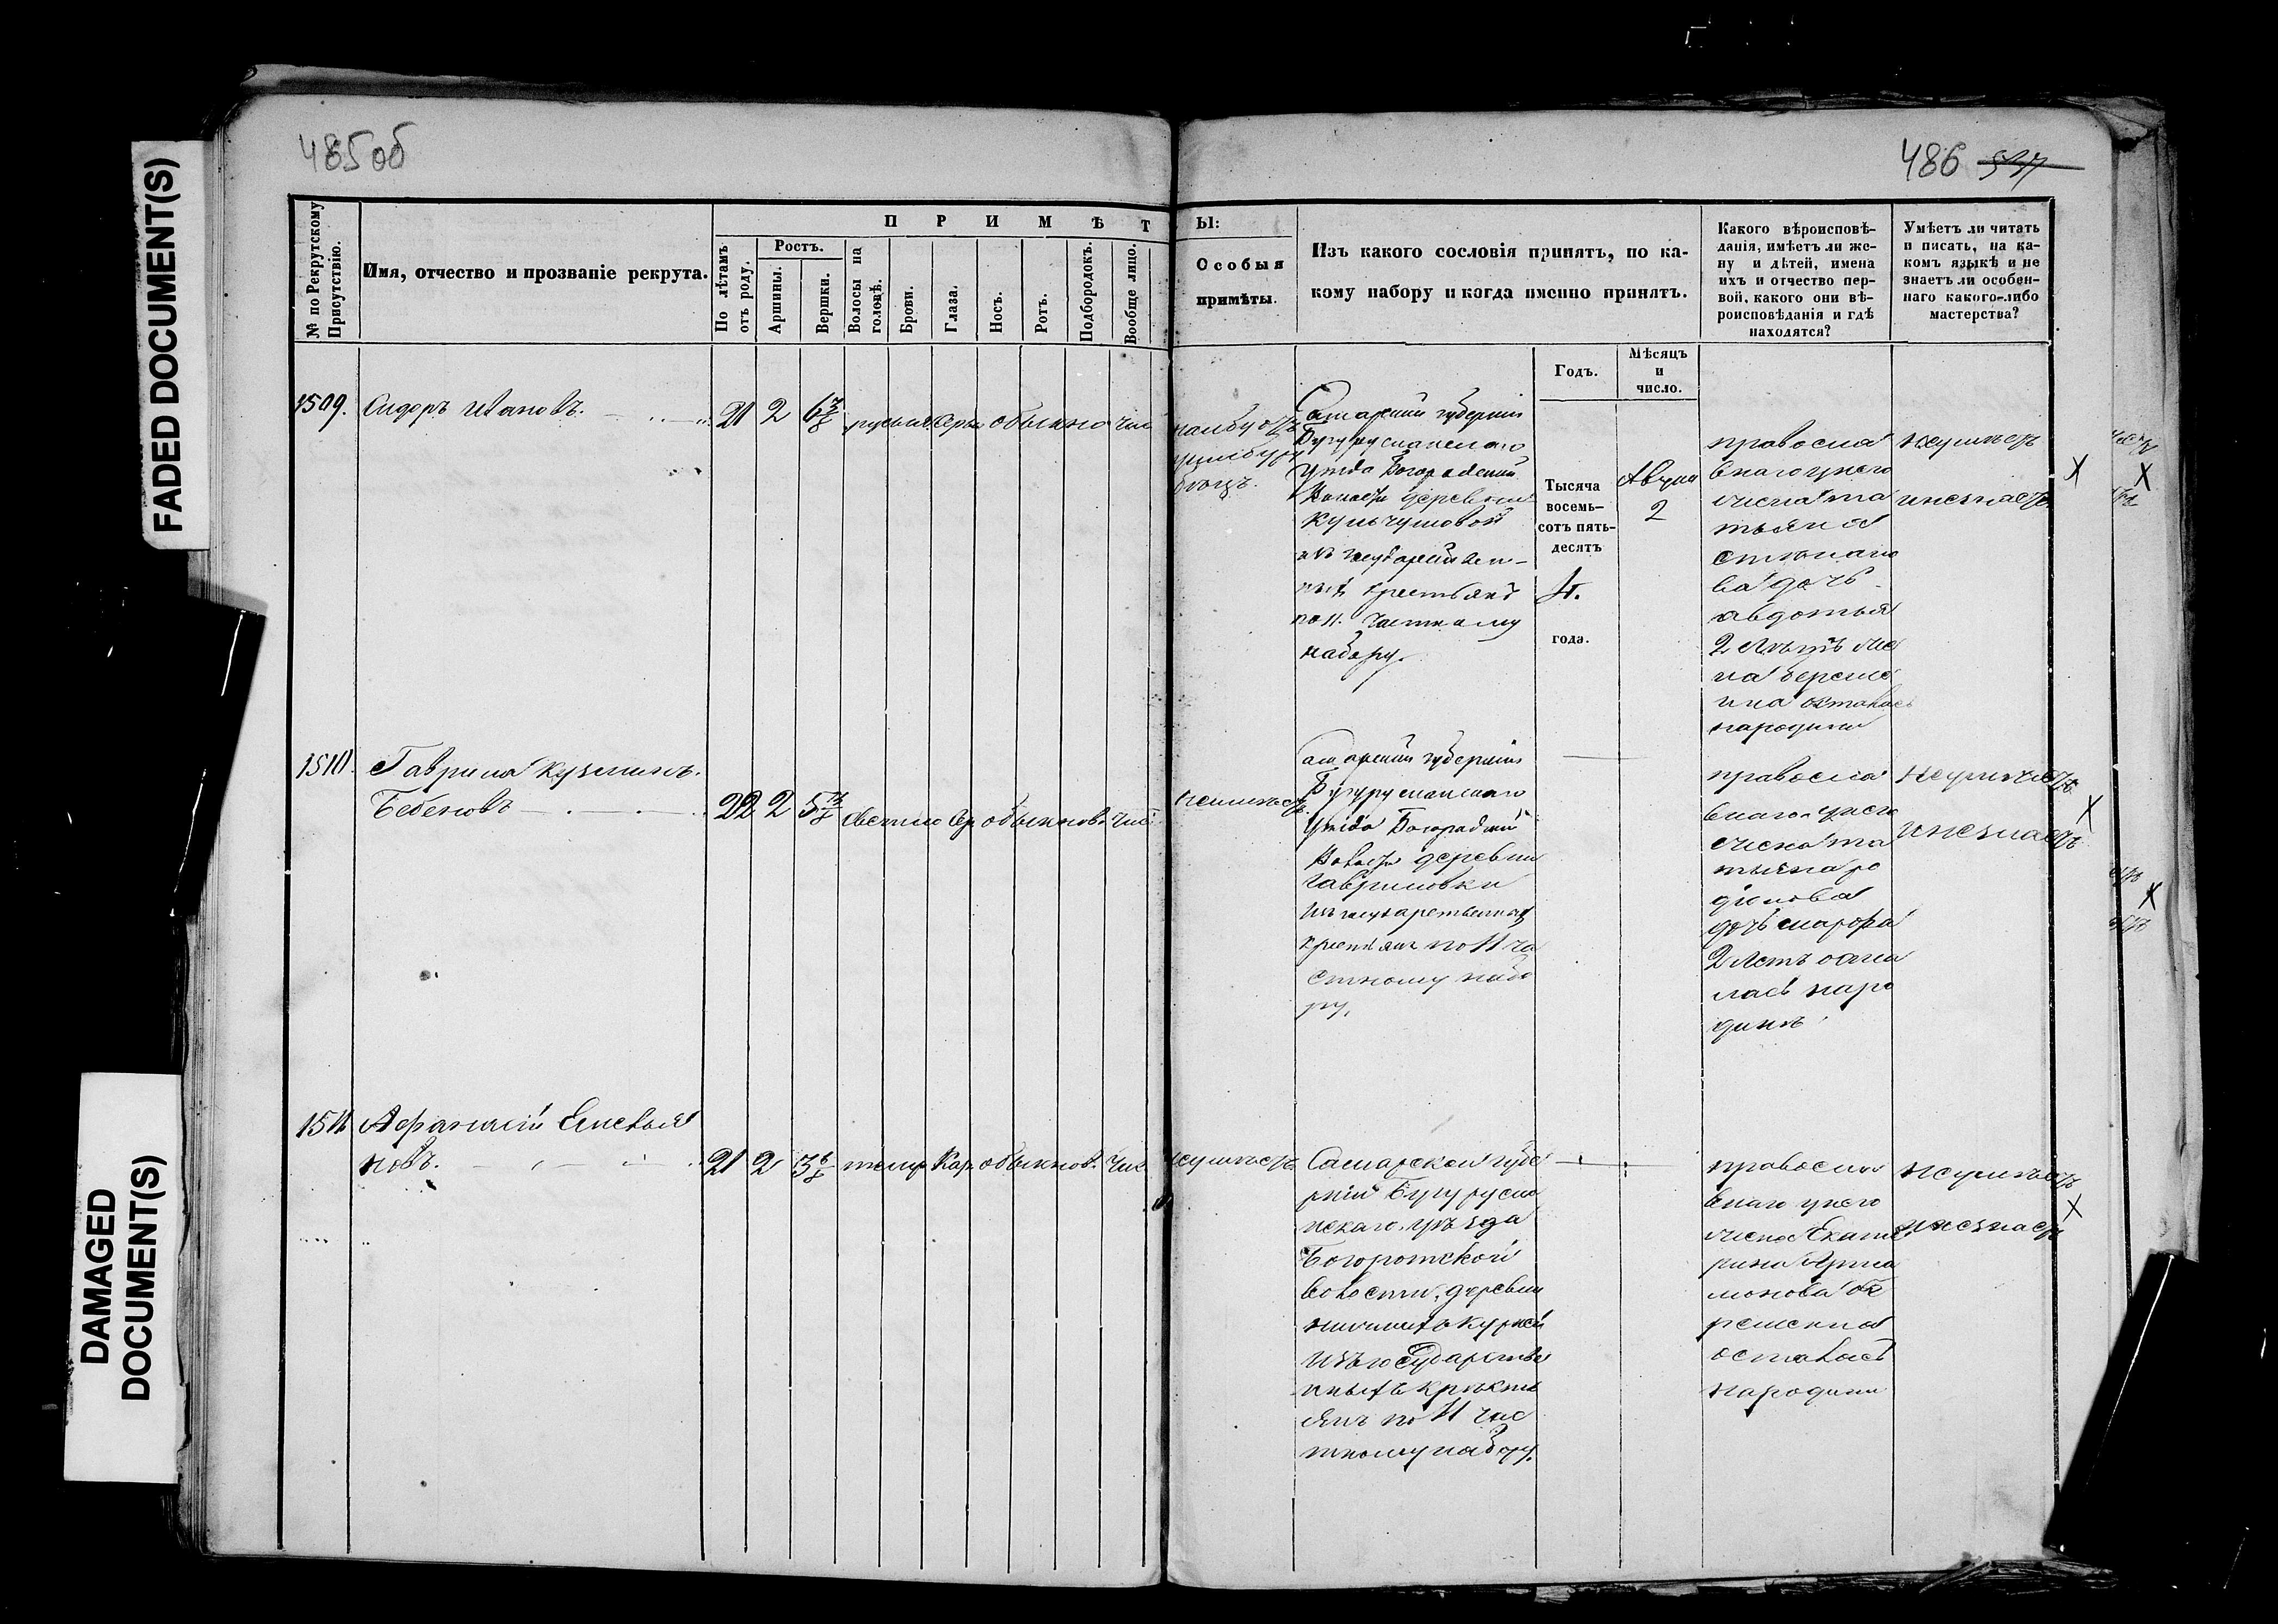 FADED DOCUMENT(S)
DAMAGED
DOCUMENT(S)
485об
486 537
№ по Рекрутскому
Присутствію.
Имя, отчество и прозваніе рекрута.
П Р И М Ѣ Т
Ы:
По лѣтамъ
отъ роду.
Ростъ.
Аршины.
Вершки.
Волосы на
головѣ.
Брови.
Глаза.
Носъ.
Ротъ.
Подбородокъ.
Вообще лицо.
Особыя
примѣты.
Изъ какого сословія принятъ, по ка-
кому набору и когда именно принятъ.
Годъ.
Мѣсяцъ
и
число.
Какого вѣроисповѣ-
данія, имѣетъ ли же-
ну и дѣтей, имена
ихъ и отчество пер-
вой, какого они вѣ-
роисповѣданія и гдѣ
находятся?
Умѣетъ ли читать
и писать, на ка-
комъ языкѣ и не
знаетъ ли особен-
наго какого-либо
мастерства?
1509. Сидоръ Ивановъ. 21 2 6 7/8 русые серы обыкно чис
Самарской губерніи
Бугурусланскаго
уезда Богородской
Волости деревни
Кульчумовой
изъ государствен-
ныхъ крестьянъ
по 11. частному
набору.
Тысяча
восемь-
сотъ пять-
десятъ
4.
года.
Август
2
правосла
внаго у него
жена та
тьяна
вадочь
авдотья
2 же
на береме
нна осталась
народине
неумѣетъ
инезнаетъ
1510. Гаврила Кузминъ.
Бебеновъ 22 2 5 светло сер обыкнов. чис
неимѣетъ
амарской губерніи
Бугурусланскаго
уезда Богородской
Волости деревни
Гавриловки
изъ государственныхъ
крестьян по 11 ча
стному набо
ру.
правосла
внаго у него
жена та
тьяна ро
діонова
дочь марфа
2 летъ оста
лась наро
динѣ
Неумѣетъ
инезнаетъ
1511 Афанасій Емелья
новъ. 21 2 3 6/8 темнр Кар. обыкнов. Чис
неимѣетъ
Самарской губе
рніи Бугурусла
нскаго уѣзда
Богоротской
волости, деревни
изъ государстве
нныхъ кресть
янъ по 11 час
тному набору.
правосла
внаго у него
жена Екате
рина Арта
монова бе
ременна
осталась
народине
неумѣетъ
инезнаетъ